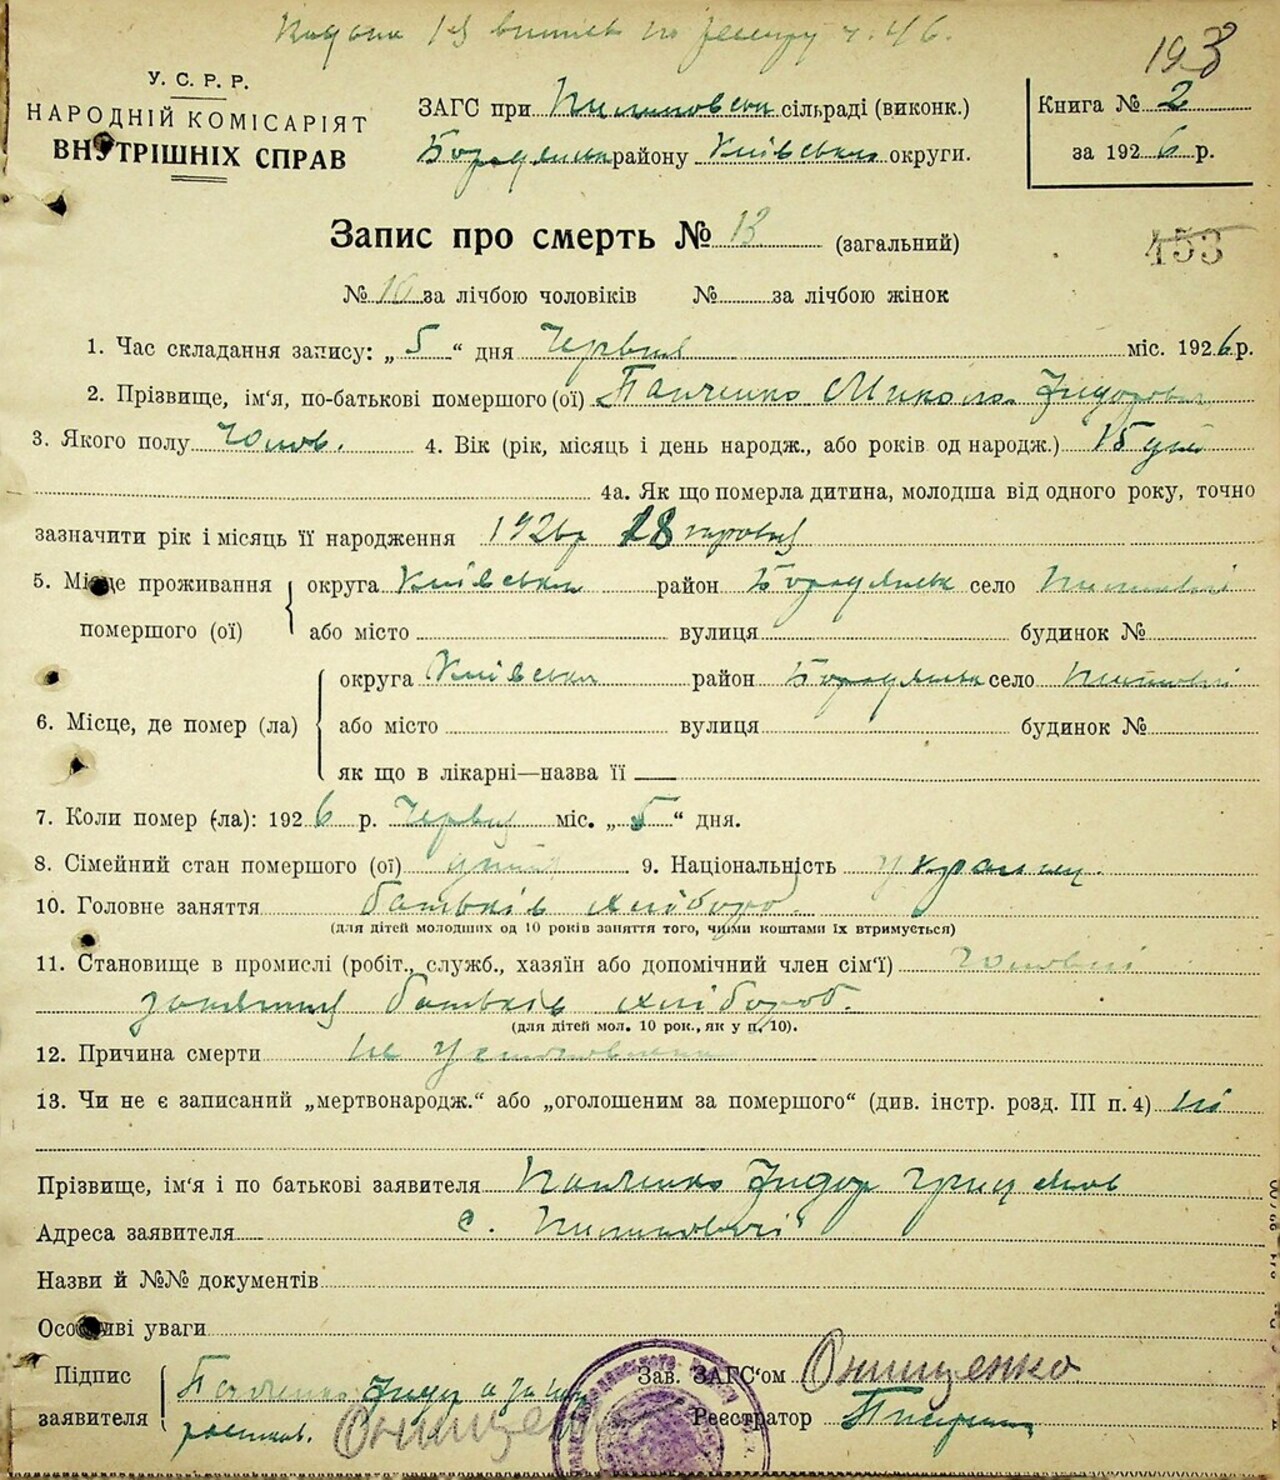 193
У. С. Р. Р.
НАРОДНІЙ КОМІСАРІЯТ
ВНУТРІШНІХ СПРАВ
ЗАГС при сільраді (виконк.)
Бородянськ району Київської округи.
Книга № 2
за 1926 р.
Запис про смерть № 13 (загальний)
453
№ 10 за лічбою чоловіків № за лічбою жінок
1. Час складання запису: „5“ дня Червня міс. 1926 р.
2. Прізвище, ім'я, по-батькові помершого (ої) Панченко Микола Зидорович
3. Якого полу Чолов. 4. Вік (рік, місяць і день народж., або років од народж.) 15 днів
4а. Як що померла дитина, молодша від одного року, точно
зазначити рік і місяць її народження 1926р 18
5. Місце проживання округа Київська район Бородянськ село
помершого (ої) або місто вулиця будинок №
округа Київська район Бородянськ село
6. Місце, де помер (ла) або місто вулиця будинок №
як що в лікарні—назва її
7. Коли помер (-ла): 1926 р. Червня міс. „5“ дня.
8. Сімейний стан помершого (ої) 9. Національність українец.
10. Головне заняття батьків хлібороб.
(для дітей молодших од 10 років заняття того, чиїми коштами їх втримується)
11. Становище в промислі (робіт., служб., хазяїн або допомічний член сім'ї)
заняття батьків хлібороб.
(для дітей мол. 10 рок., як у п. 10).
12. Причина смерти не установлена
13. Чи не є записаний „мертвонародж.“ або „оголошеним за помершого“ (див. інстр. розд. III п. 4) ні
Прізвище, ім'я і по батькові заявителя Панченко Зидор Грицьков
Адреса заявителя с.
Назви й №№ документів
Особливі уваги
Підпис
заявителя Панченко Зидор
Онищенко
Зав. ЗАГС'ом Онищенко
Реєстратор